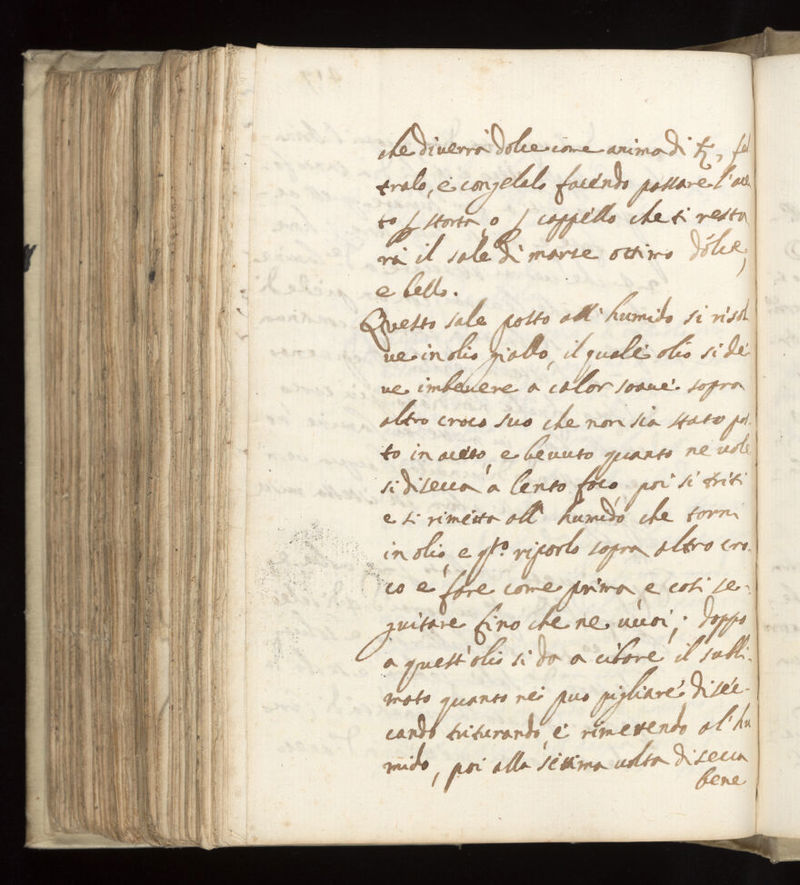 che diverrà dolce come anima di ♄, fel
tralo, e congelalo facendo passare l'ace
to ꝑ storta, o ꝑ cappello che ti resta
rà il sale di marte ottimo dolce,
e bello.
Questo sale posto all'humido si risol
ve in olio giallo, il quale olio si de
ve imbevere a calor soave sopra
altro croco suo che non sia stato pos
to in aceto, e bevuto quanto ne vole
si disecca à lento foco, poi si triti
e si rimetta all'humido che torni
in olio, e q.to riporlo sopra altro cro-
co e fare come prima e cosi se-
guitare fino che ne vuoi; doppo
a quest'olio si da a cibare il subli-
mato quanto nei può pigliare disec-
cando triturando, e rimettendo al'hu
mido, poi alla settima volta disecca
bene